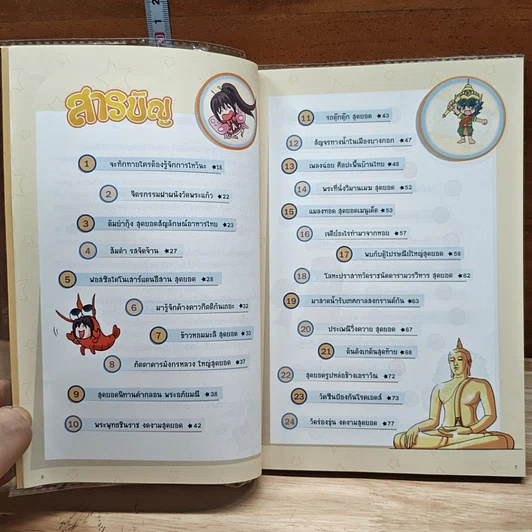 สารบัญ
1 จะทักทายใครต้องรู้จักการไหว้นะ ★18
2 จิตรกรรมฝาผนังวัดพระแก้ว ★22
3 ต้มยำกุ้ง สุดยอดสัญลักษณ์อาหารไทย ★23
4 ส้มตำ รสจัดจ้าน ★27
5 ฟอสซิลไดโนเสาร์แดนอีสาน สุดยอด ★28
6 มารู้จักค้างคาวกิตติกันเถอะ ★32
7 ข้าวหอมมะลิ สุดยอด ★33
8 ภัตตาคารมังกรหลวง ใหญ่สุดยอด ★37
9 สุดยอดนิทานคำกลอน พระอภัยมณี ★38
10 พระพุทธชินราช งดงามสุดยอด ★42
6
11 รถตุ๊กตุ๊ก สุดยอด ★43
12 สัญจรทางน้ำในเมืองบางกอก ★47
13 เพลงฉ่อย ศิลปะพื้นบ้านไทย ★48
14 พระที่นั่งวิมานเมฆ สุดยอด ★52
15 แมลงทอด สุดยอดเมนูเด็ด ★53
16 เจดีย์อะไรทำมาจากหอย ★57
17 พบกับตู้ไปรษณีย์ใหญ่สุดยอด ★58
18 โลหะปราสาทวัดราชนัดดารามวรวิหาร สุดยอด ★62
19 มาสาดน้ำรับเทศกาลสงกรานต์กัน ★63
20 ประเพณีวิ่งควาย สุดยอด ★67
21 ต้นดิงเกต้นสุดท้าย ★68
22 สุดยอดรูปหล่อช้างเอราวัณ ★72
23 วัคซีนป้องกันโรคเอดส์ ★73
24 วัดร่องขุ่น งดงามสุดยอด ★77
7